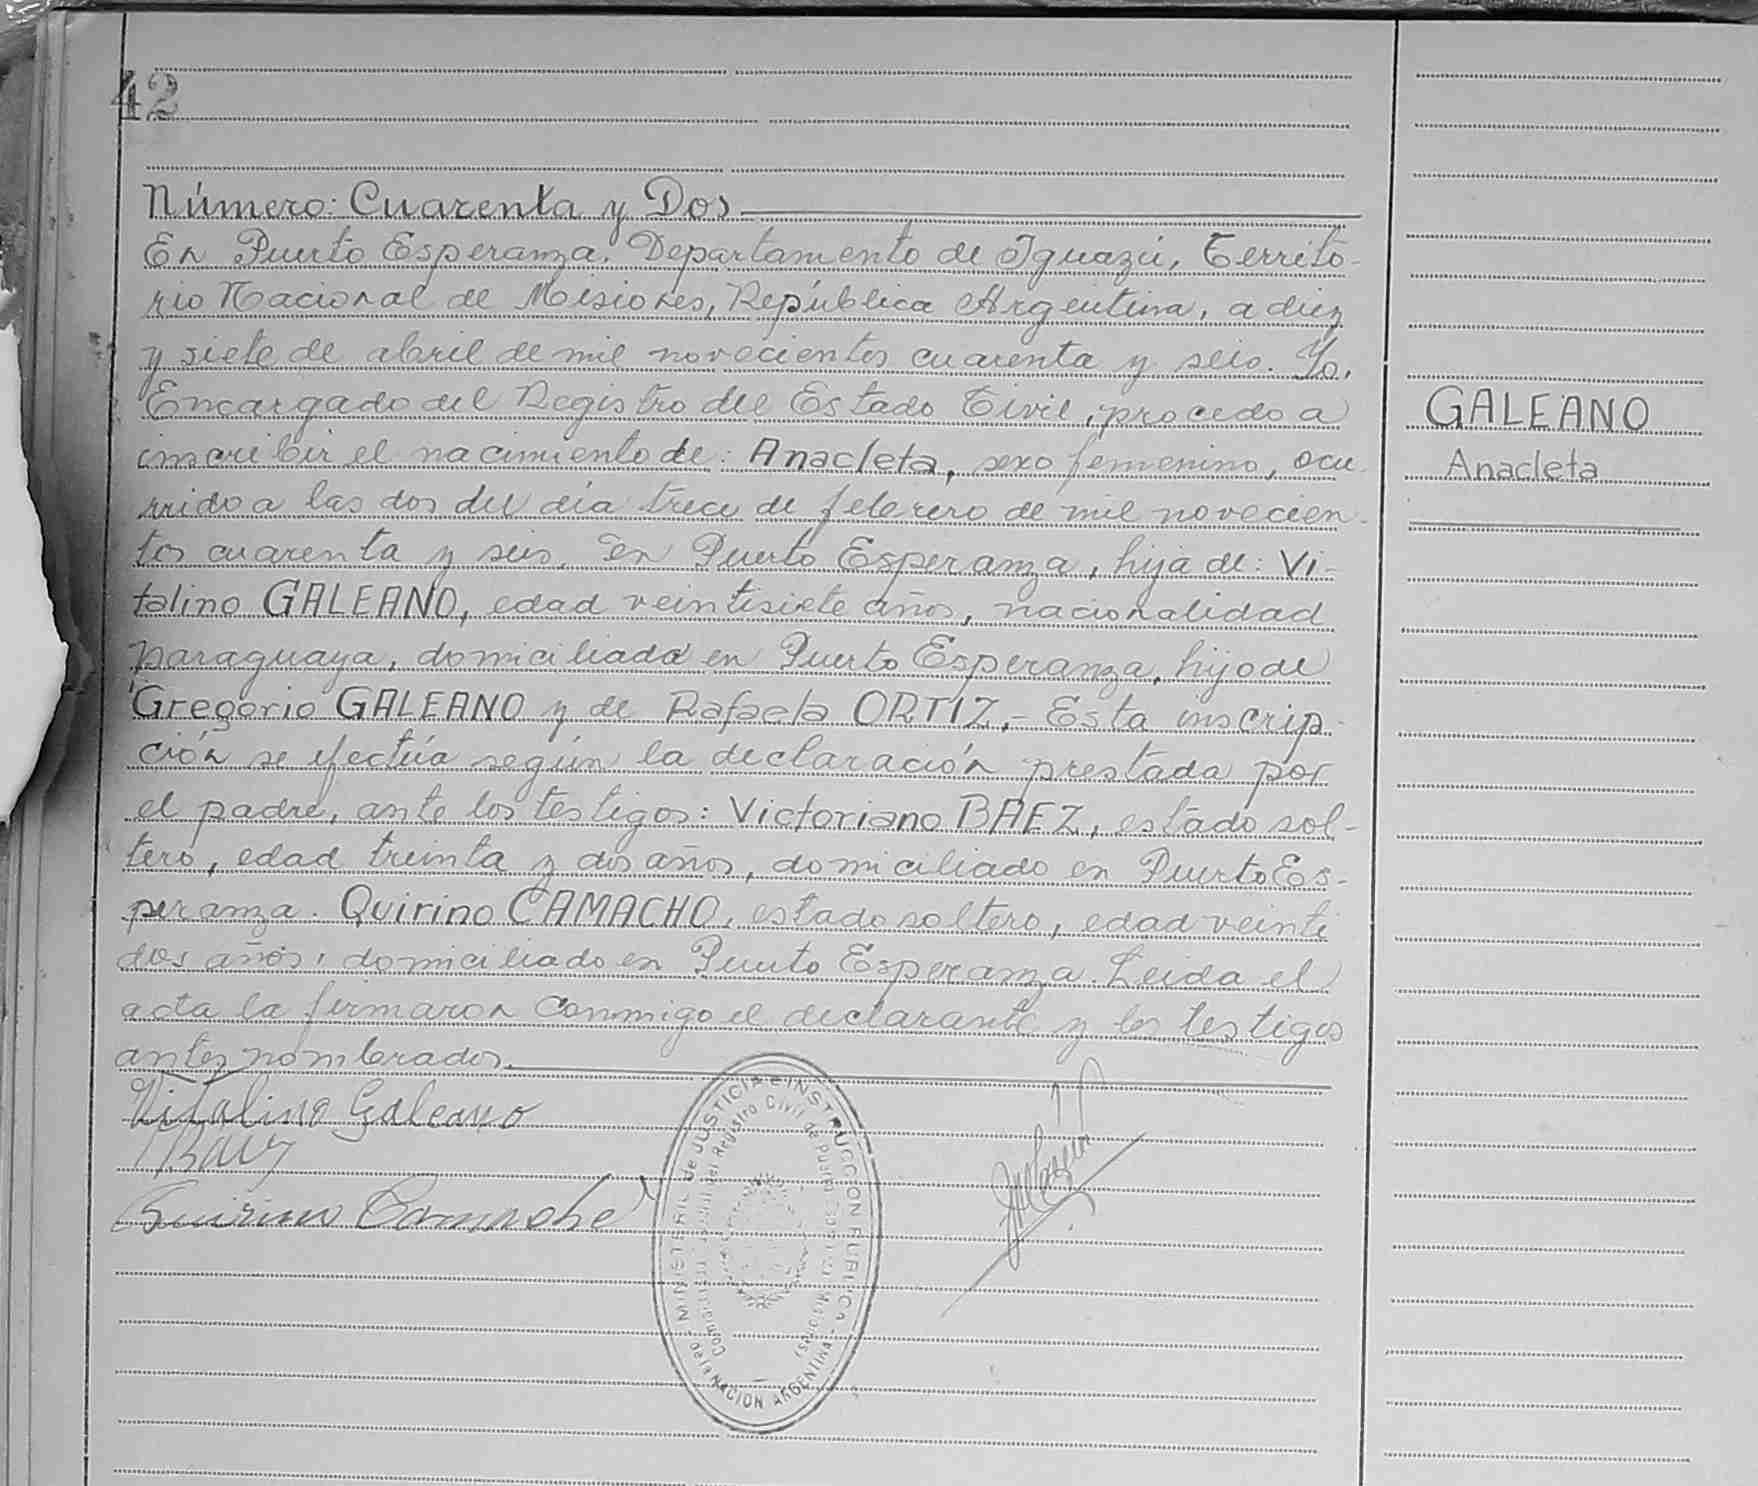 42
Número: Cuarenta y Dos
En Puerto Esperanza, Departamento de Iguazú, Territo-
rio Nacional de Misiones, República Argentina, a diez
y siete de abril de mil novecientos cuarenta y seis. Yo,
Encargado del Registro del Estado Civil, procedo a
inscribir el nacimiento de: Anacleta, sexo femenino, ocu-
rrido a las dos del día trece de febrero de mil novecien-
tos cuarenta y seis, en Puerto Esperanza, hija de: Vi-
talino GALEANO, edad veintisiete años, nacionalidad
paraguaya, domiciliado en Puerto Esperanza, hijo de
Gregorio GALEANO y de Rafaela ORTIZ.- Esta inscrip-
ción se efectúa según la declaración prestada por
el padre, ante los testigos: Victoriano BAEZ, estado sol-
tero, edad treinta y dos años, domiciliado en Puerto Es-
peranza. Quirino CAMACHO, estado soltero, edad veinti
dos años, domiciliado en Puerto Esperanza. Leida el
acta la firmaron conmigo el declarante y los testigos
antes nombrados.
Vitalino Galeano
VBaez
Quirino Camacho
GALEANO
Anacleta
MINISTERIO de JUSTICIA e INSTRUCCION PUBLICA
NACION ARGENTINA
del Registro Civil de Puerto Esperanza (Misiones)